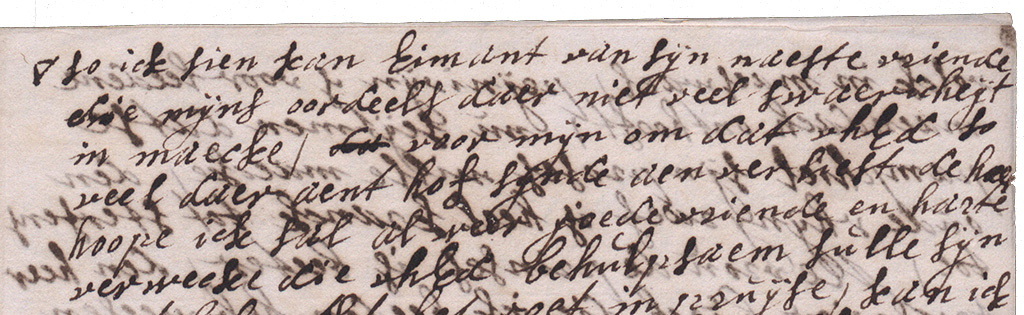 so ick sien kan kimant van sijn naeste vriende
die mijns oordeels daer niet veel swaericheijt
in maecke / voor mijn om dat vhEd so
veel daer aent hof sijnde aen verkiest de
hoope ick sal al weer goede vriende en harte
verwecke die vhEd behulpsaem sulle sijn
in pruijse / kan ick